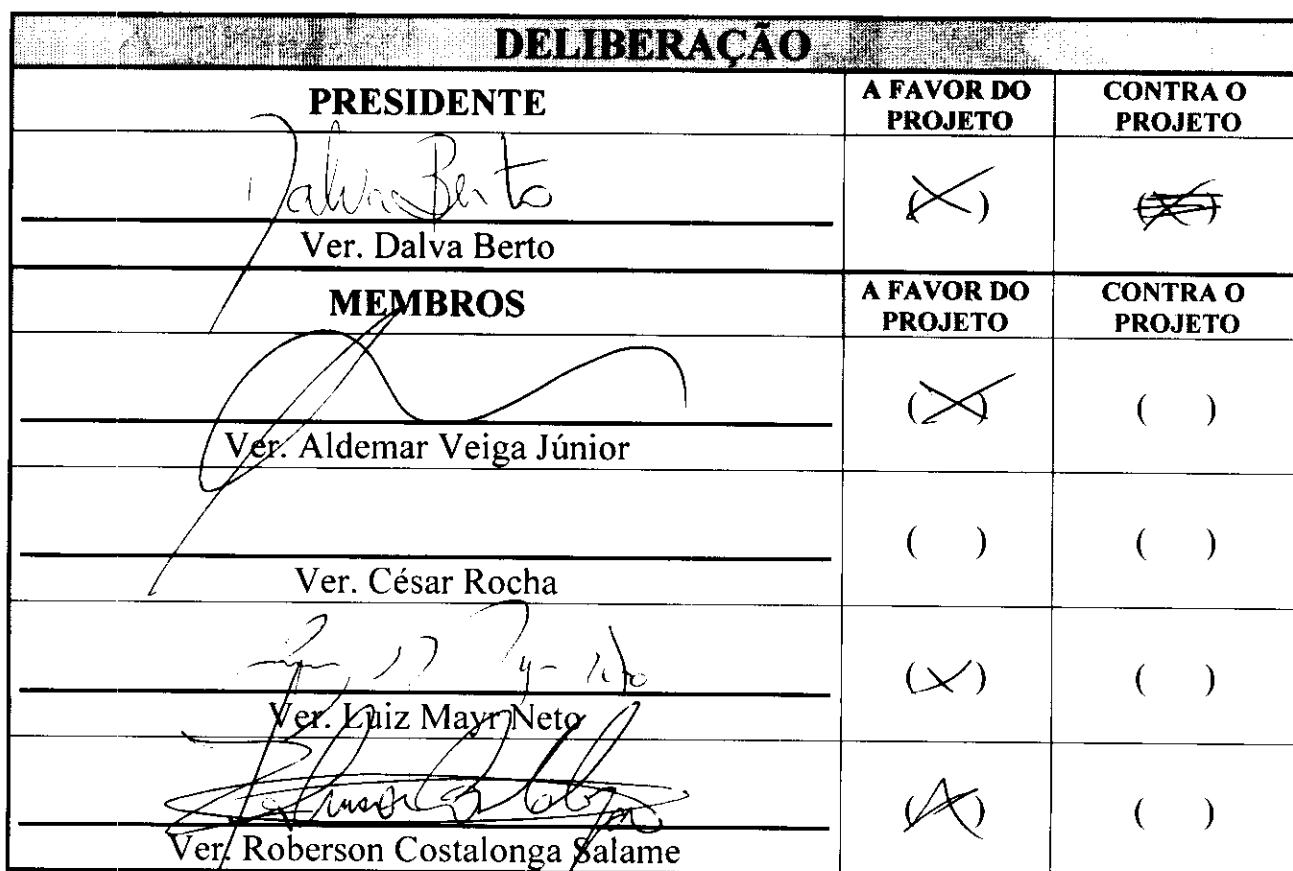 DELIBERAÇÃO
PRESIDENTE A FAVOR DO PROJETO CONTRA O PROJETO
Dalva Berto (X) (X)
Ver. Dalva Berto
MEMBROS A FAVOR DO PROJETO CONTRA O PROJETO
(X) ( )
Ver. Aldemar Veiga Júnior
( ) ( )
Ver. César Rocha
(X) ( )
Ver. Luiz Mayr Neto
(X) ( )
Ver. Roberson Costalonga Salame